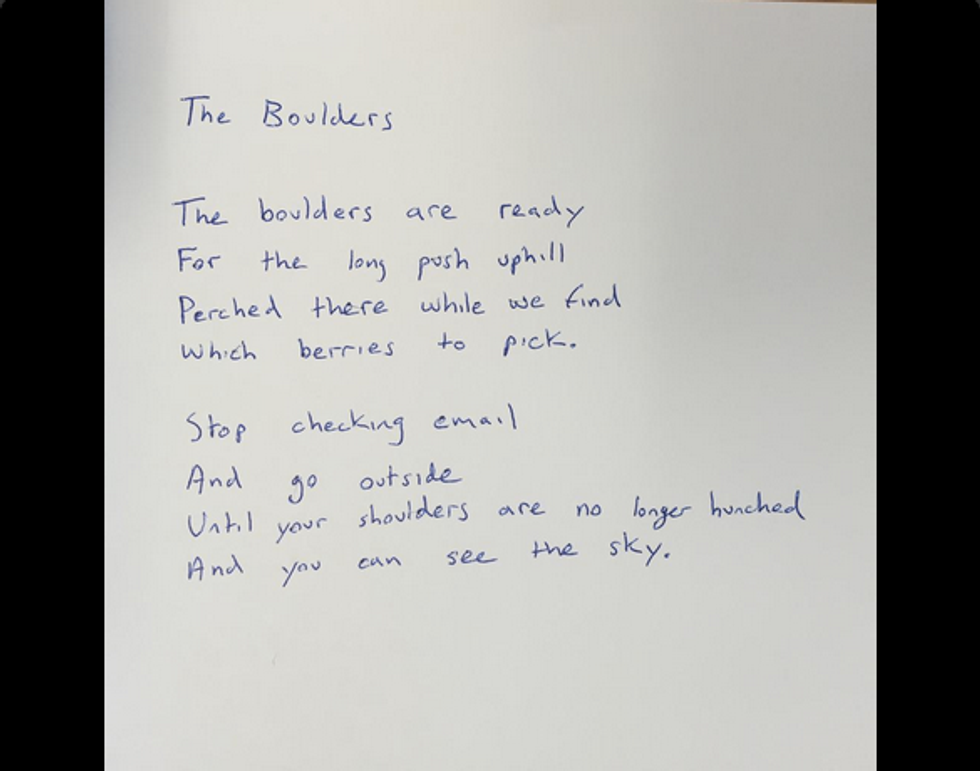 The Boulders
The boulders are ready
For the long push uphill
Perched there while we find
Which berries to pick.
Stop checking email
And go outside
Until your shoulders are no longer hunched
And you can see the sky.